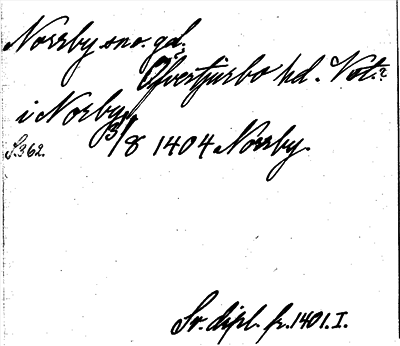 Norrby sno. gd.
Ofvertjurbo hd. Vst.?
i Norby,
S.362. 13/8 1404 Norrby.
Sv. dipl. fr. 1401. I.